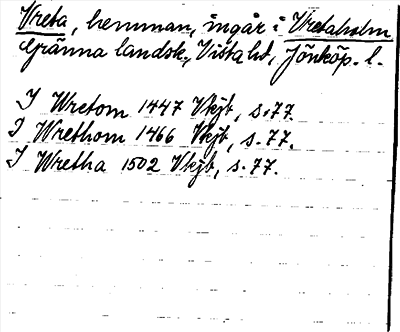 Vreta, hemman, ingår i Vretaholm
Gränna landsk., Vista hd, Jönköp. l.
I Wretom 1447 Vkjb, s. 77.
I Wrethom 1466 Vkjb, s. 77.
I Wretha 1502 Vkjb, s. 77.